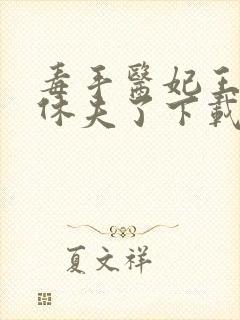 毒手醫妃王
休夫了下載
夏文祥